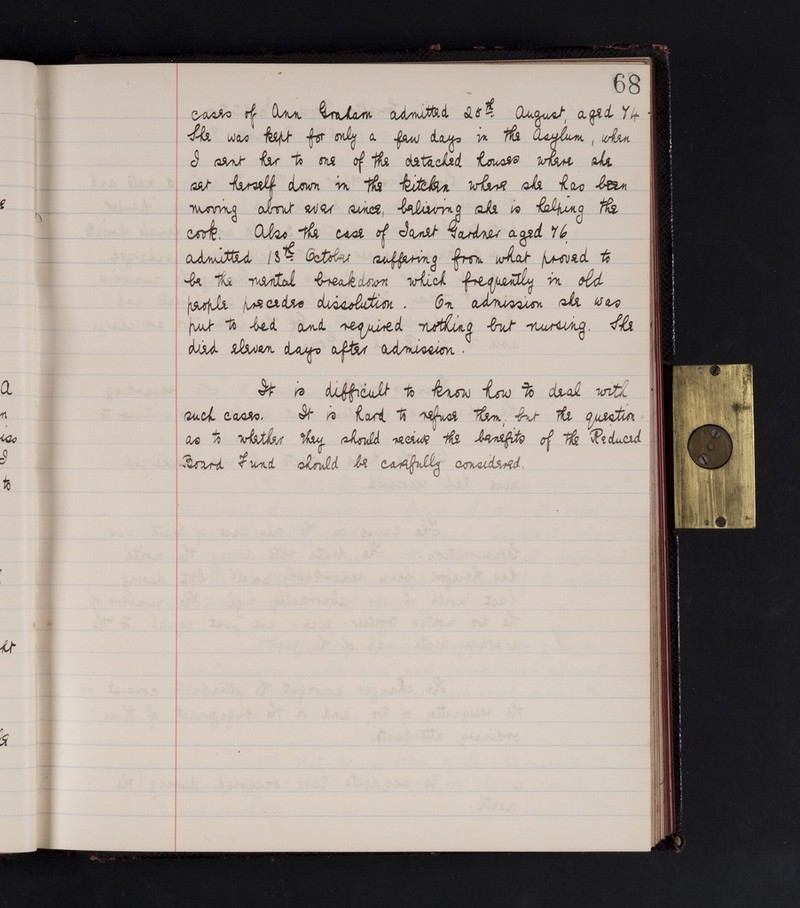 68
cases of Ann Graham admitted 28th August, aged 74.
She was kept for only a few days in the Asylum, when
I sent her to one of the detached houses where she
set herself down in the kitchen where she has been
moving about ever since, believing she is helping the
cook. Also the case of Janet Gardner aged 76
admitted 13th October suffering from what proved to
be the mental breakdown which frequently in old
people precedes dissolution. On admission she was
put to bed and required nothing but nursing. She
died eleven days after admission.
It is difficult to know how to deal with
such cases. It is hard to refuse them, but the question
as to whether they should receive the benefits of the Reduced
Board Fund should be carefully considered.
a
I
to